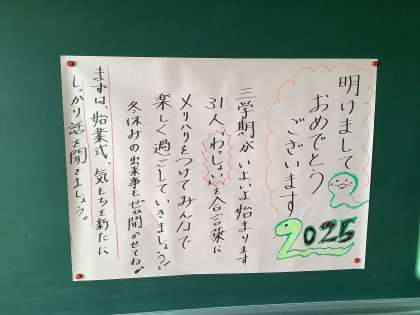 明けまして
おめでとう
ございます
2025
三学期がいよいよ始まります
31人"わっしょい"を合言葉に
メリハリをつけてみんなで
楽しく過ごしていきましょう!
冬休みの出来事もぜひ聞かせてね♪
まずは、始業式、気もちを新たに
しっかり話を聞きましょう。